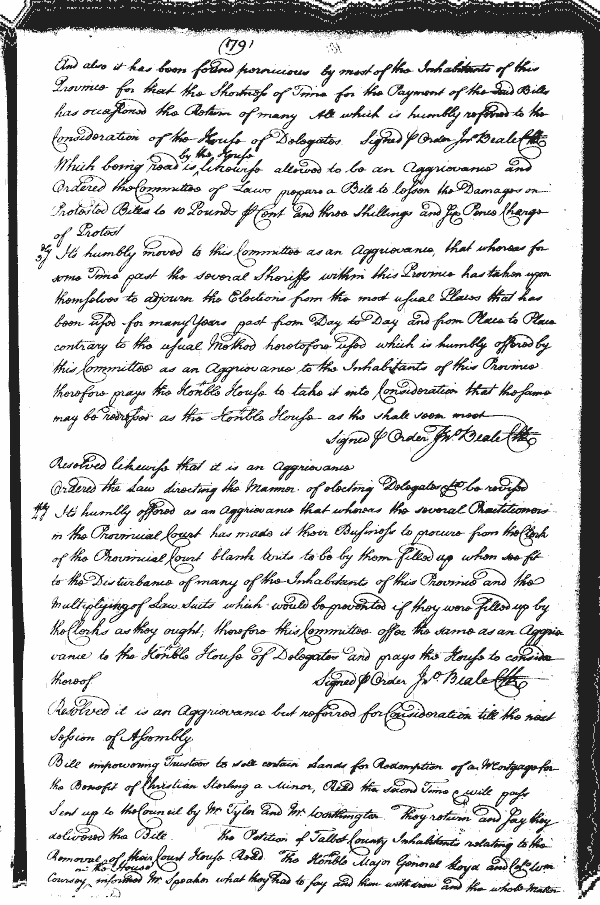 (179)
And also it has been found pernicious by most of the Inhabitants of this
Province for that the Shortness of Time for the Payment of the said Bills
has occasioned the Return of many All which is humbly referred to the
Consideration of the House of Delegates Signed ⅌ Order Jno Beale Clk
by the House
Which being read is likewise allowed to be an Aggrievance and
Ordered the Committee of Laws prepare a Bill to lessen the Damages on
Protested Bills to 10 Pounds ⅌ Cent and three Shillings and Six Pence Charge
of Protest
3ly Its humbly moved to this Committee as an Aggrievance, that whereas for
some Time past the several Sheriffs within this Province has taken upon
themselves to adjourn the Elections from the most usual Places that has
been used for many Years past from Day to Day and from Place to Place
contrary to the usual Method heretofore used which is humbly offered by
this Committee as an Aggrievance to the Inhabitants of this Province
therefore prays the Honble House to take it into Consideration that the same
may be redresses as the Honble House as the shall seem meet
Signed ⅌ Order Jno Beale Clk
Resolved likewise that it is an Aggrievance
Ordered the Law directing the Manner of electing Delegates &ca be revised
4ly Its humbly offered as an Aggrievance that whereas the several Practitioners
in the Provincial Court has made it their Business to procure from the Clerk
of the Provincial Court blank Writs to be by them filled up when see fit
to the Disturbance of many of the Inhabitants of this Province and the
Multiplying of Law Suits which would be prevented if they were filled up by
the Clerks as they ought, therefore this Committee offer the same as an Aggrie
vance to the Honble House of Delegates and prays the House to consider
thereof Signed ⅌ Order Jno Beale Clk
Resolved it is an Aggrievance but referred for Consideration till the next
Session of Assembly
Bill empowering Trustees to sell certain Lands for Redemption of a Mortgage for
the Benefit of Christian Sterling a Minor, Read the second Time & will pass
Sent up to the Council by Mr Tyler and Mr Worthington They return and say they
delivered the Bill the Petition of Talbot County Inhabitants relating to the
Removal of their Court House Read The Honble Major General Lloyd and Colo Wm
in the House
Coursey, informed Mr Speaker what they had to say and then withdrew and the whole Matter